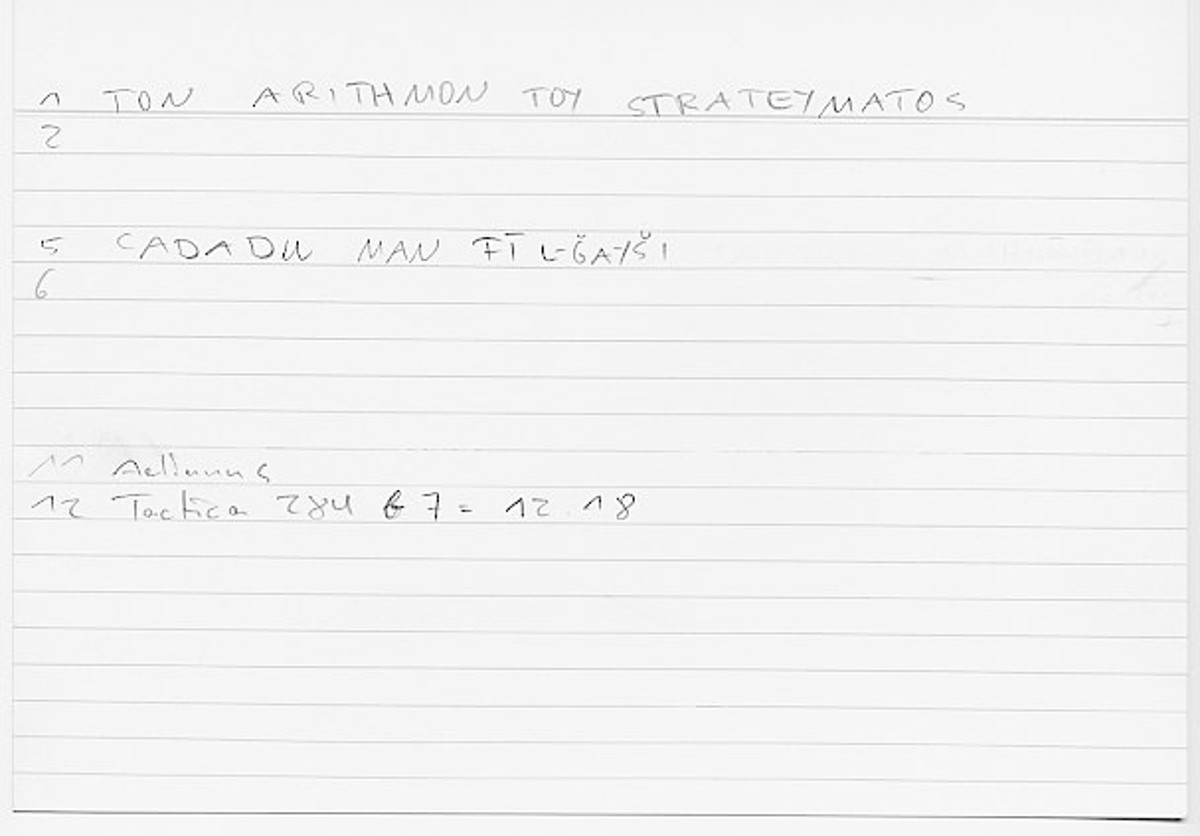 1 TON ARITHMON TOY STRATEYMATOS
2
5 CADADU MAN FĪ L-ǦAYŠI
6
11 Aelianus
12 Tactica 284 b 7 = 12.18